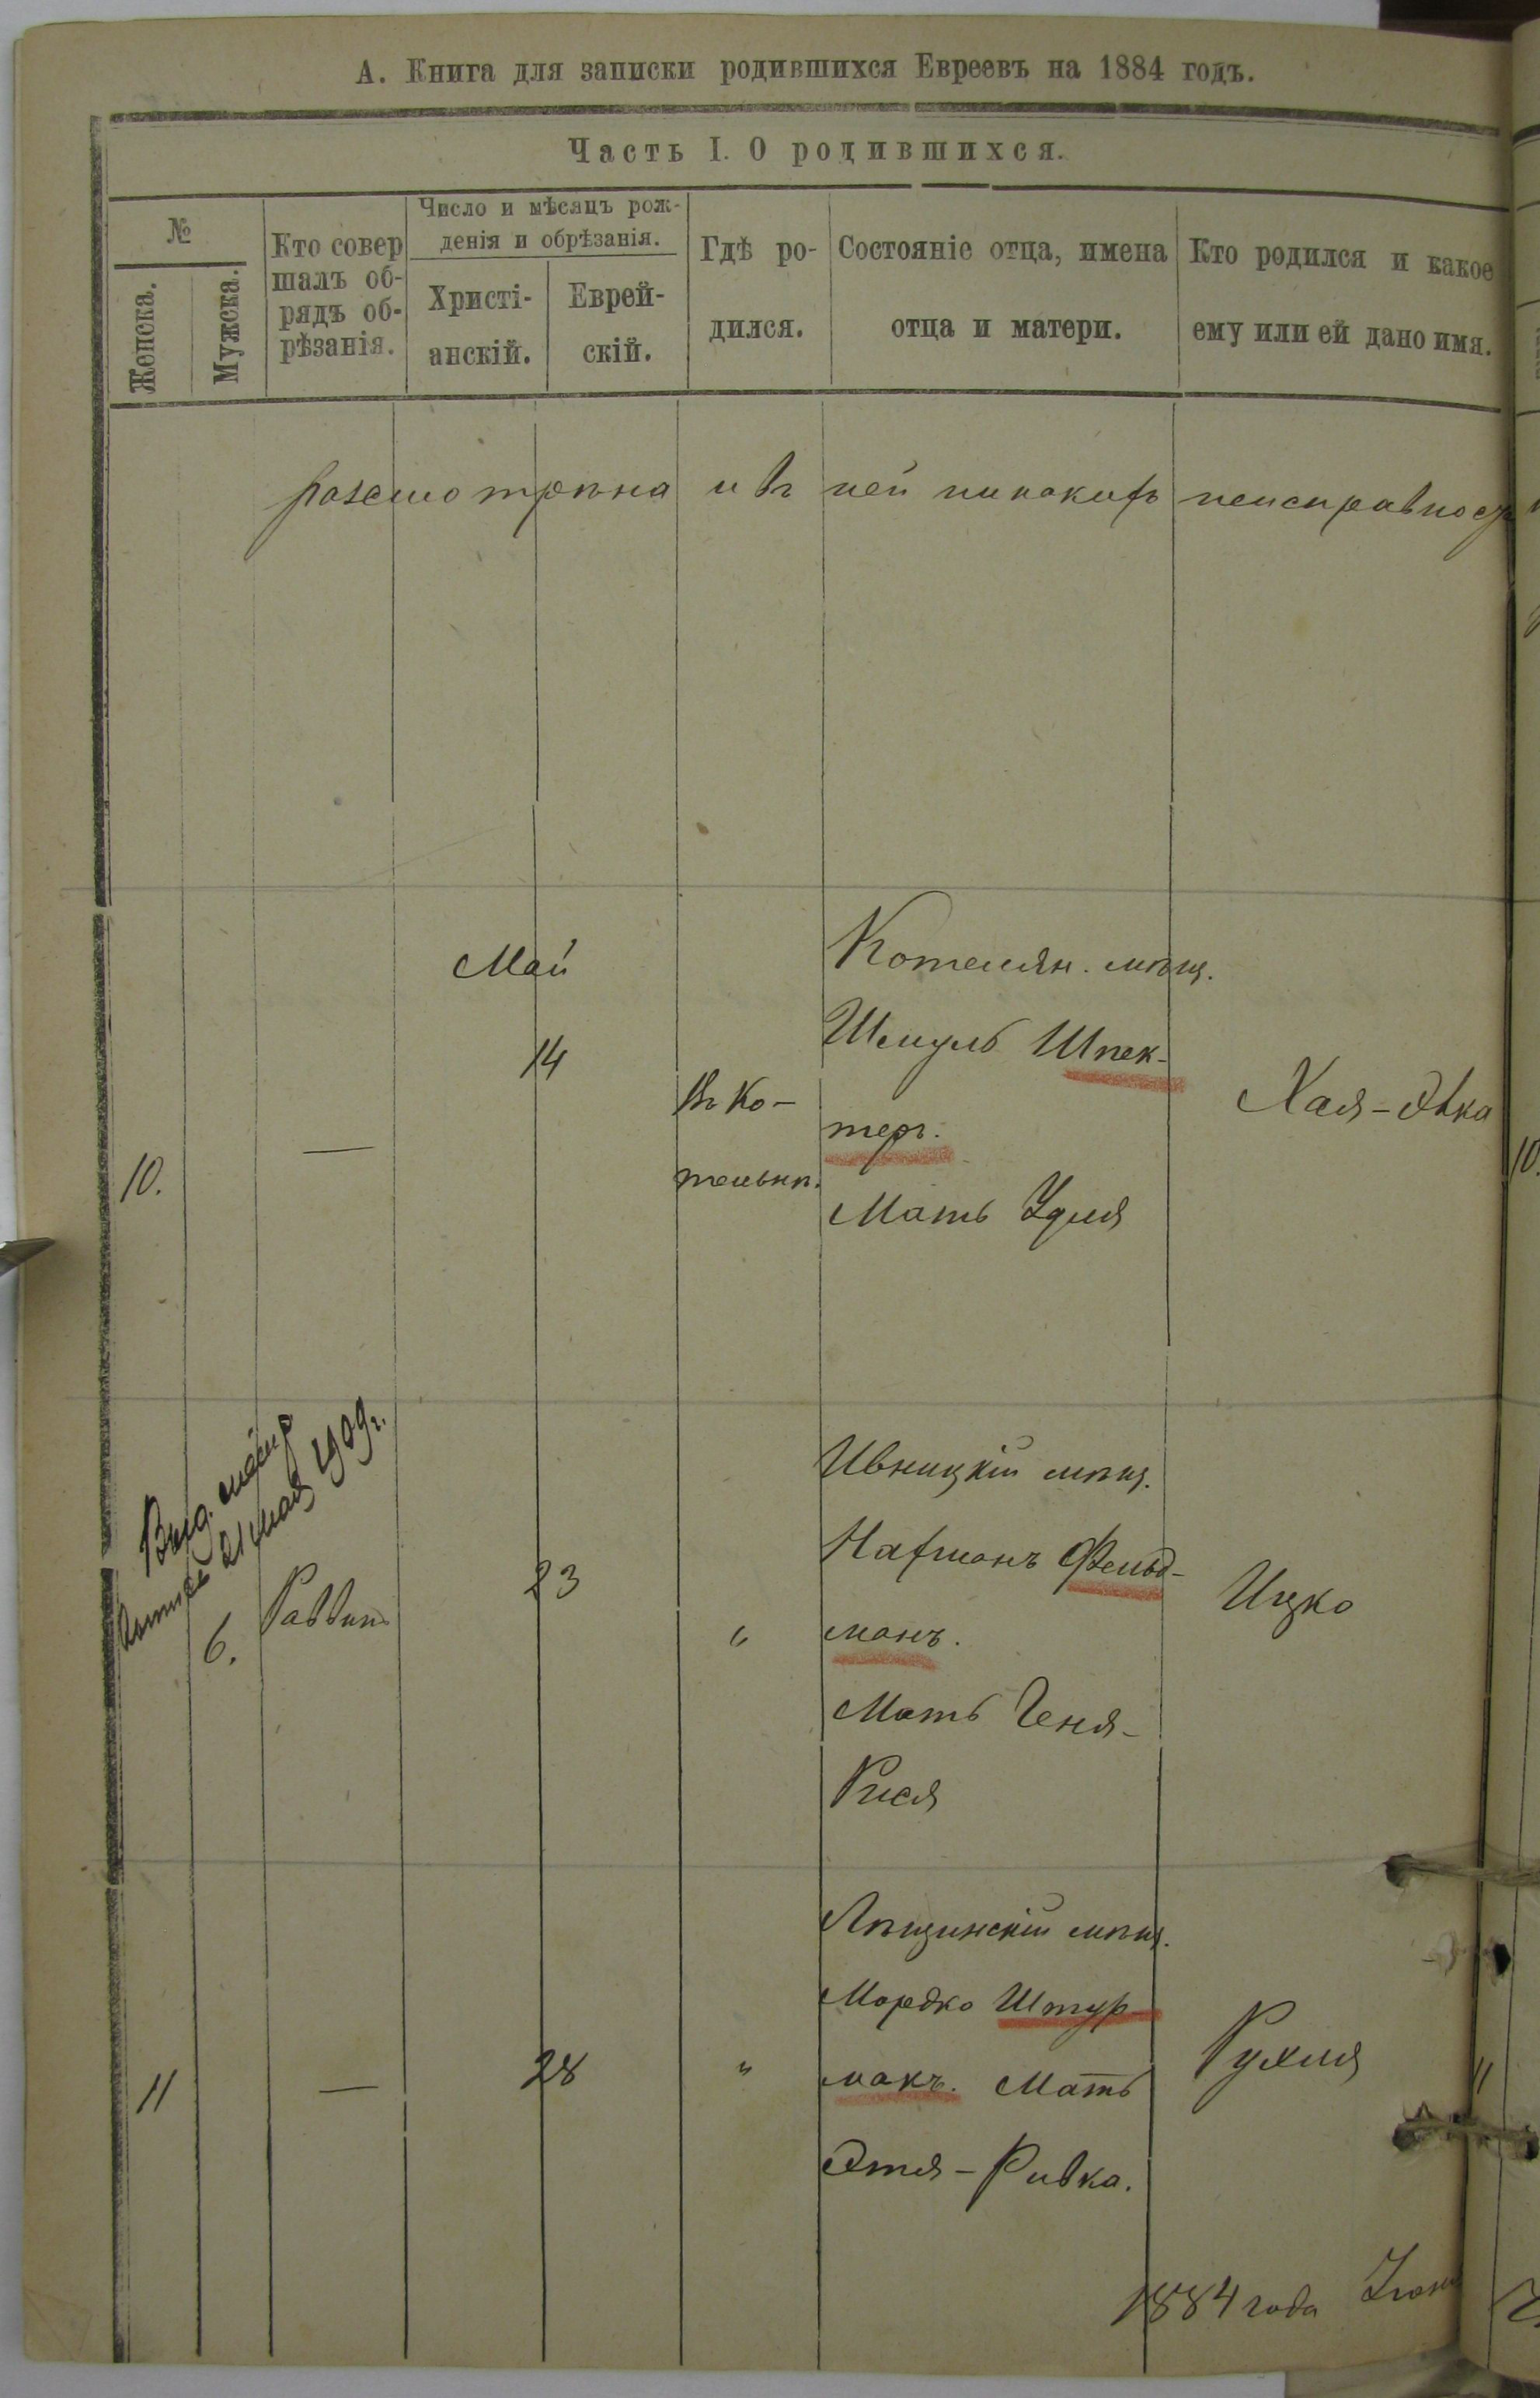 А. Книга для записки родившихся Евреевъ на 1884 годъ.
Часть I. О родившихся.
№
Женска.
Мужска.
Кто совер
шалъ об-
рядъ об-
рѣзанія.
Число и мѣсяцъ рож-
денія и обрѣзанія.
Христі-
анскій.
Еврей-
скій.
Гдѣ ро-
дился.
Состояніе отца, имена
отца и матери.
Кто родился и какое
ему или ей дано имя.
разсмотрѣна и въ ней никакихъ неисправност
Май
10.
—
14
Въ Ко-
тельнѣ.
Котелян. мѣщ.
Шмуль Шпек-
теръ.
Мать Удля
Хая-Эвка
10.
Выд.
21 мая 1909 г.
6.
Раввинъ
23
"
Ивницкій мѣщ.
Нахманъ Фельд-
манъ.
Мать Геня-
Рися
Ицко
11
—
28
"
Лѣщинскій мѣщ.
Мордко Штур
макъ. Мать
Этля-Ривка.
Рухля
11
1884 года Іюн